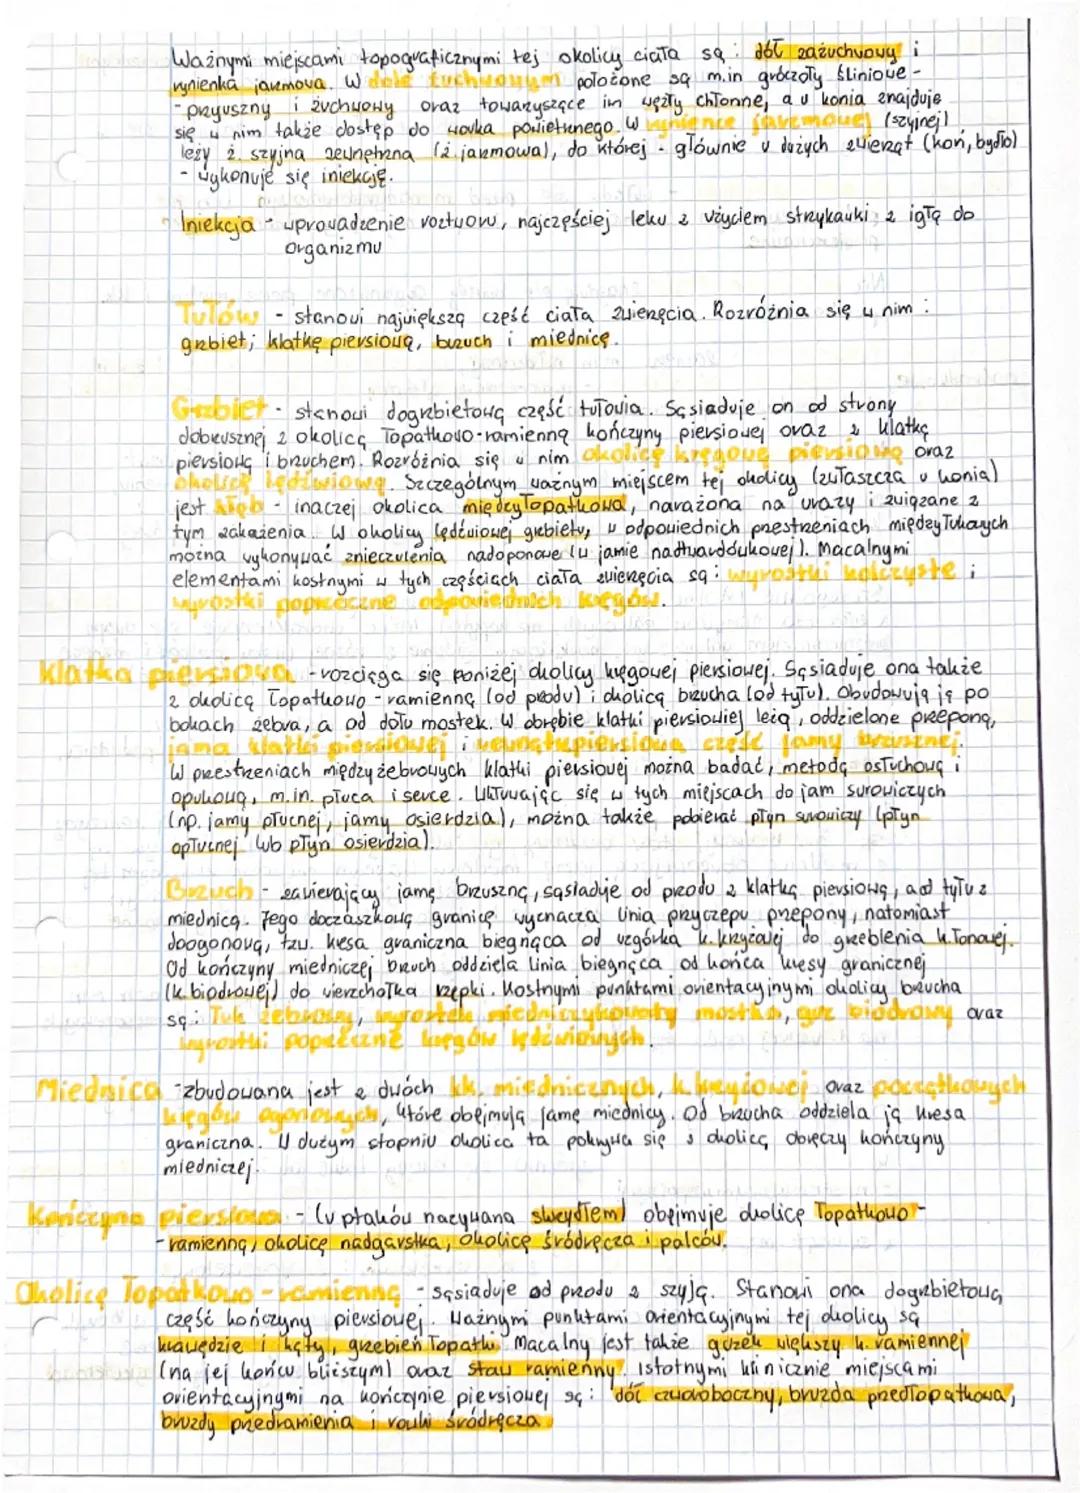 Ważnymi miejscami topograficznymi tej okolicy ciała są: dół zażuchwowy i
rynienka jarzmowa. W dole żuchwowym położone są m.in gruczoły śliniowe -
- przyuszny i żuchwowy oraz towarzyszące im węzły chłonne, a u konia znajduje
się w nim także dostęp do worka powietrznego. W rynience jarzmowej (szyjnej)
leży ż. szyjna zewnętrzna (ż. jarzmowa), do której - głównie u dużych zwierząt (koń, bydło)
- wykonuje się iniekcję.
Iniekcja - wprowadzenie roztworu, najczęściej leku z użyciem strzykawki z igłą do
organizmu
Tułów - stanowi największą część ciała zwierzęcia. Rozróżnia się w nim:
grzbiet; klatkę piersiową, brzuch i miednicę.
Grzbiet - stanowi dogrzbietową część tułowia. Sąsiaduje on od strony
dobrzusznej z okolicą łopatkowo-ramienną kończyny piersiowej oraz z klatką
piersiową i brzuchem. Rozróżnia się w nim okolicę kręgową piersiową oraz
okolicę lędźwiową. Szczególnym ważnym miejscem tej okolicy (zwłaszcza u konia)
jest kłąb - inaczej okolica międzyłopatkowa, narażona na urazy i związane z
tym zakażenia. W okolicy lędźwiowej grzbietu, w odpowiednich przestrzeniach międzyłukowych
można wykonywać znieczulenia nadoponowe (w jamie nadtwardówkowej). Macalnymi
elementami kostnymi w tych częściach ciała zwierzęcia są: wyrostki kolczyste i
wyrostki poprzeczne odpowiednich kręgów.
Klatka piersiowa - rozciąga się poniżej okolicy kręgowej piersiowej. Sąsiaduje ona także
z okolicą łopatkowo - ramienną (od przodu) i okolicą brzucha (od tyłu). Obudowują ją po
bokach żebra, a od dołu mostek. W obrębie klatki piersiowiej leżą, oddzielone przeponą,
jama klatki piersiowej i wewnątrzpiersiowa część jamy brzusznej.
W przestrzeniach międzyżebrowych klatki piersiowej można badać, metodą osłuchową i
opukową, m.in. płuca i serce. Wkłuwając się w tych miejscach do jam surowiczych
(np. jamy płucnej, jamy osierdzia), można także pobierać płyn surowiczy (płyn
opłucnej lub płyn osierdzia).
Brzuch - zawierający jamę brzuszną, sąsiaduje od przodu z klatką piersiową, a od tyłu z
miednicą. Jego doczaszkową granicę wyznacza linia przyczepu przepony, natomiast
doogonową, tzw. kresa graniczna biegnąca od wzgórka k. krzyżowej do grzebienia k. łonowej.
Od kończyny miedniczej brzuch oddziela linia biegnąca od końca kresy granicznej
(k. biodrowej) do wierzchołka rzepki. Kostnymi punktami orientacyjnymi okolicy brzucha
są: łuk żebrowy, wyrostek mieczykowaty mostka, guz biodrowy oraz
wyrostki poprzeczne kręgów lędźwiowych.
Miednica - zbudowana jest z dwóch kk. miednicznych, k. krzyżowej oraz początkowych
kręgów ogonowych, które obejmują jamę miednicy. Od brzucha oddziela ją kresa
graniczna. W dużym stopniu okolica ta pokrywa się z okolicą obręczy kończyny
miedniczej.
Kończyna piersiowa - (u ptaków nazywana skrzydłem) obejmuje okolicę łopatkowo -
- ramienną, okolicę nadgarstka, okolicę śródręcza i palców.
Okolicę łopatkowo - ramienną - sąsiaduje od przodu z szyją. Stanowi ona dogrzbietową
część kończyny piersiowej. Ważnymi punktami orientacyjnymi tej okolicy są
krawędzie i kąty, grzebień łopatki. Macalny jest także guzek większy k. ramiennej
(na jej końcu bliższym) oraz staw ramienny. Istotnymi klinicznie miejscami
orientacyjnymi na kończynie piersiowej są: dół czworoboczny, bruzda przedłopatkowa,
bruzdy przedramienia i rowki śródręcza